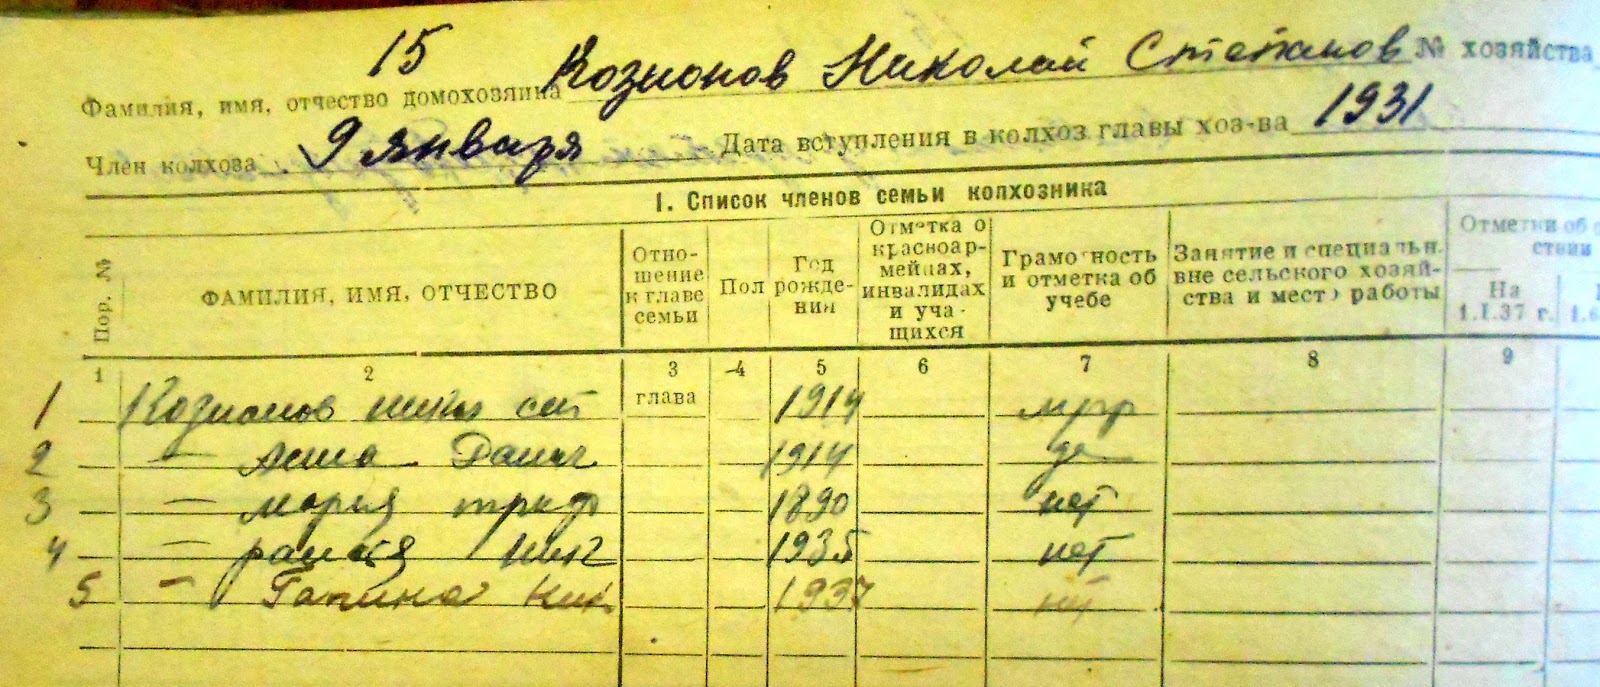 15
Фамилия, имя, отчество домохозяина Козионов Николай Степанов № хозяйства
Член колхоза 9 января Дата вступления в колхоз главы хоз-ва 1931
1. Список членов семьи колхозника
Пор. №
ФАМИЛИЯ, ИМЯ, ОТЧЕСТВО
Отно-
шение
к главе
семьи
Пол
Год
рожде-
ния
Отметка о
красноар-
мейцах,
инвалидах
и уча-
щихся
Грамотность
и отметка об
учебе
Занятие и специальн.
вне сельского хозяй-
ства и место работы
Отметки об
ствии
На
1.I.37 г.
1 2 3 4 5 6 7 8 9
1 Козионов ник ст глава 1914
2 — 1914 да
3 — мария триф 1890 нет
4 — 1935 нет
5 — Галина Ник 1937 нет